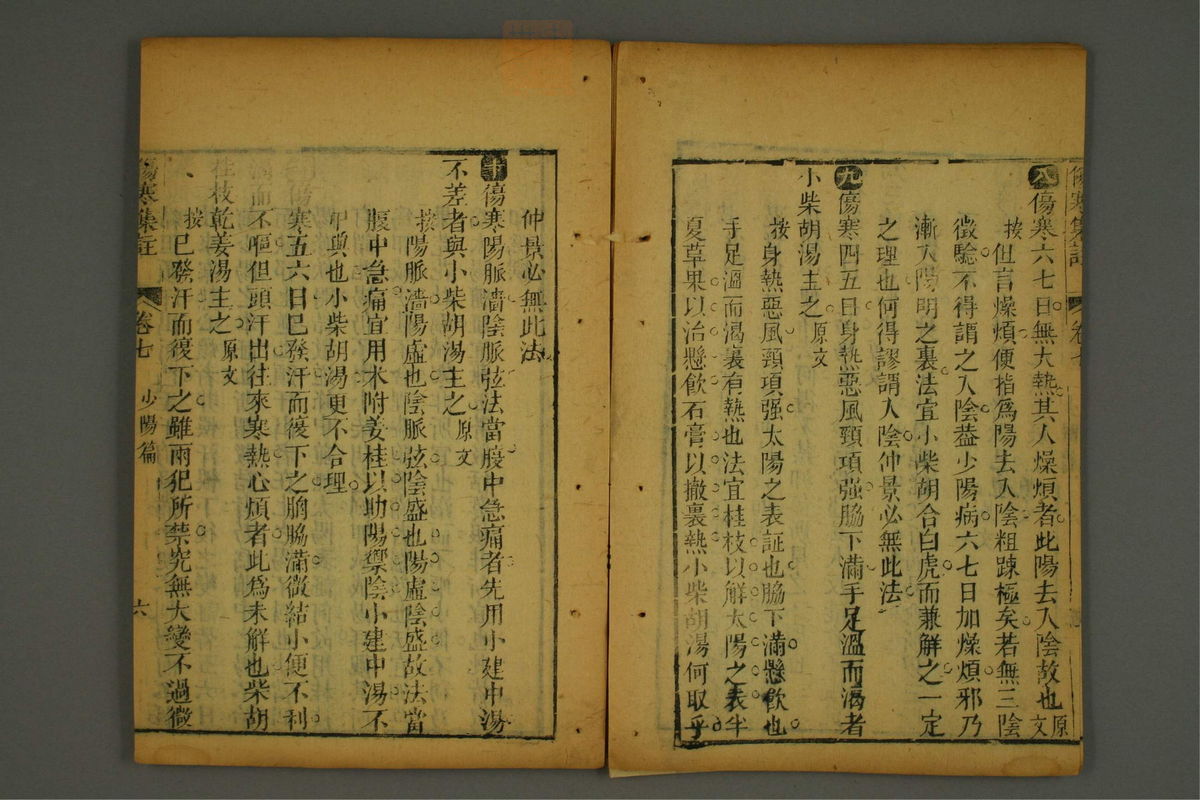 傷寒集註 卷七
八傷寒六七日無大熱其人燥煩者此陽去入陰故也原文
按但言燥煩便指爲陽去入陰粗踈極矣若無三陰
徵驗不得謂之入陰葢少陽病六七日加燥煩邪乃
漸入陽明之裏法宜小柴胡合白虎而兼解之一定
之理也何得謬謂入陰仲景必無此法
九傷寒四五日身熱惡風頸項强脇下滿手足溫而渴者
小柴胡湯主之原文
按身熱惡風頸項强太陽之表証也脇下滿懸飲也
手足溫而渴裏有熱也法宜桂枝以解太陽之表半
夏草果以治懸飲石膏以撤裏熱小柴胡湯何取乎
仲景必無此法
十傷寒陽脈濇陰脈弦法當腹中急痛者先用小建中湯
不差者與小柴胡湯主之原文
按陽脈濇陽虛也陰脈弦陰盛也陽虛陰盛故法當
腹中急痛宜用术附姜桂以助陽禦陰小建中湯不
中與也小柴胡湯更不合理
傷寒五六日巳發汗而復下之胸脇滿微結小便不利
而不嘔但頭汗出往來寒熱心煩者此爲未解也柴胡
桂枝乾姜湯主之原文
按巳發汗而復下之雖兩犯所禁究無大變不過微
傷寒集註 卷七 少陽篇 六